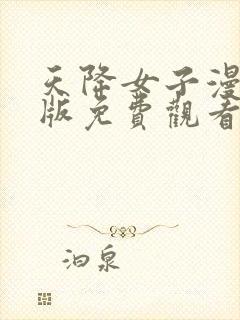 天降女子漫
版免費觀看
泊泉